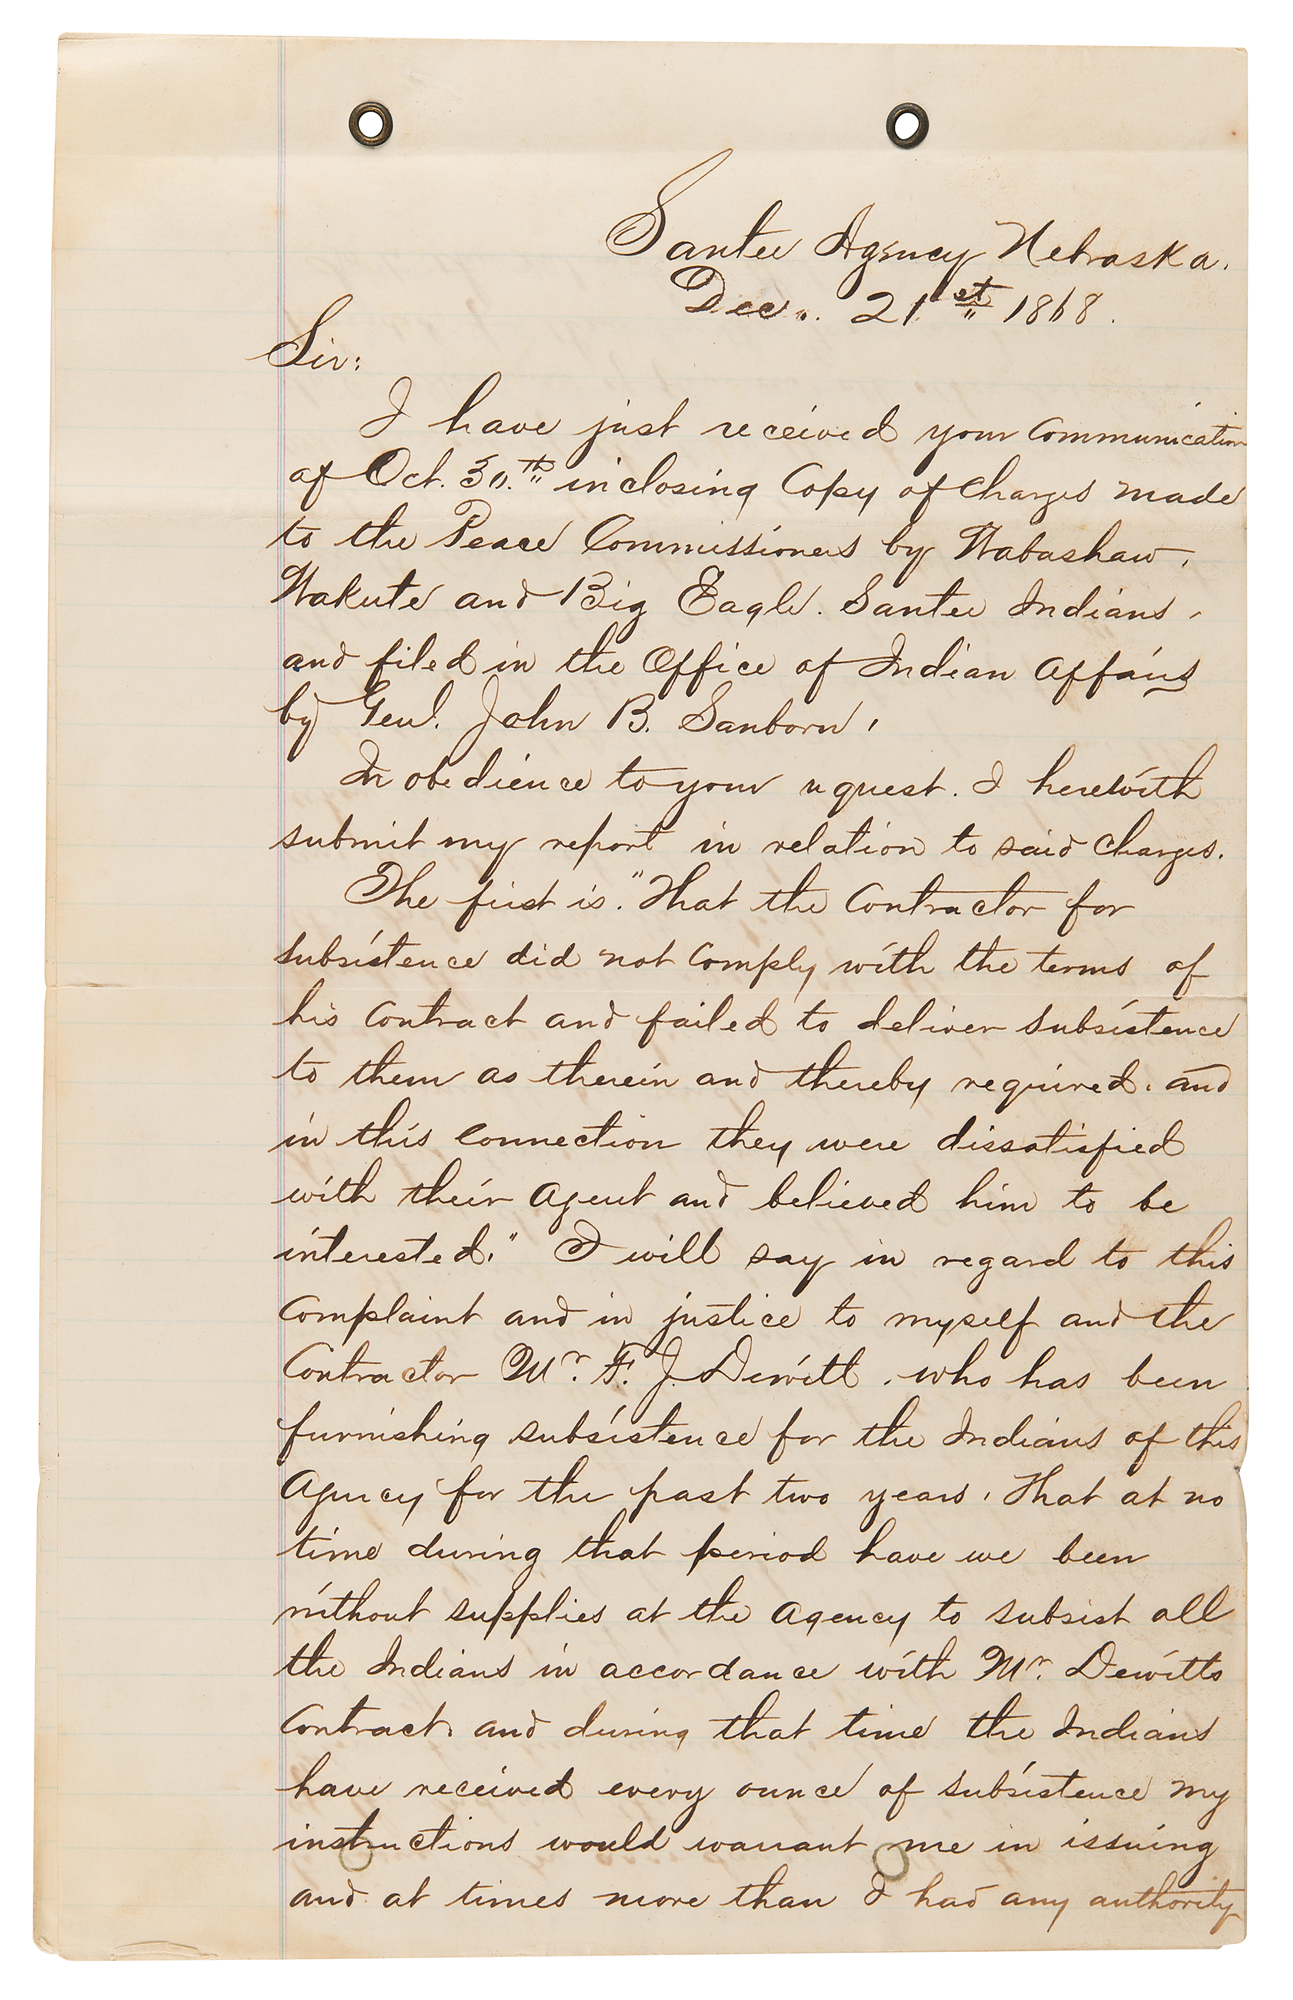 Santee Agency Nebraska.
Dec. 21st 1868.
Sir:
I have just received your Communication
of Oct. 30.th inclosing Copy of Charges made
to the Peace Commissioners by Wabashaw,
Wakute and Big Eagle. Santee Indians,
and filed in the Office of Indian Affairs
by Genl. John B. Sanborn,
In obedience to your request. I herewith
submit my report in relation to said Charges.
The first is. "That the Contractor for
subsistence did not Comply with the terms of
his Contract and failed to deliver subsistence
to them as therein and thereby required. and
in this Connection they were dissatisfied
with their Agent and believed him to be
interested." I will say in regard to this
Complaint and in justice to myself and the
Contractor Mr. F. J. Dewitt, who has been
furnishing subsistence for the Indians of this
Agency for the past two years, That at no
time during that period have we been
without supplies at the Agency to subsist all
the Indians in accordance with Mr. Dewitts
Contract, and during that time the Indians
have received every ounce of subsistence my
instructions would warrant me in issuing
and at times more than I had any authority